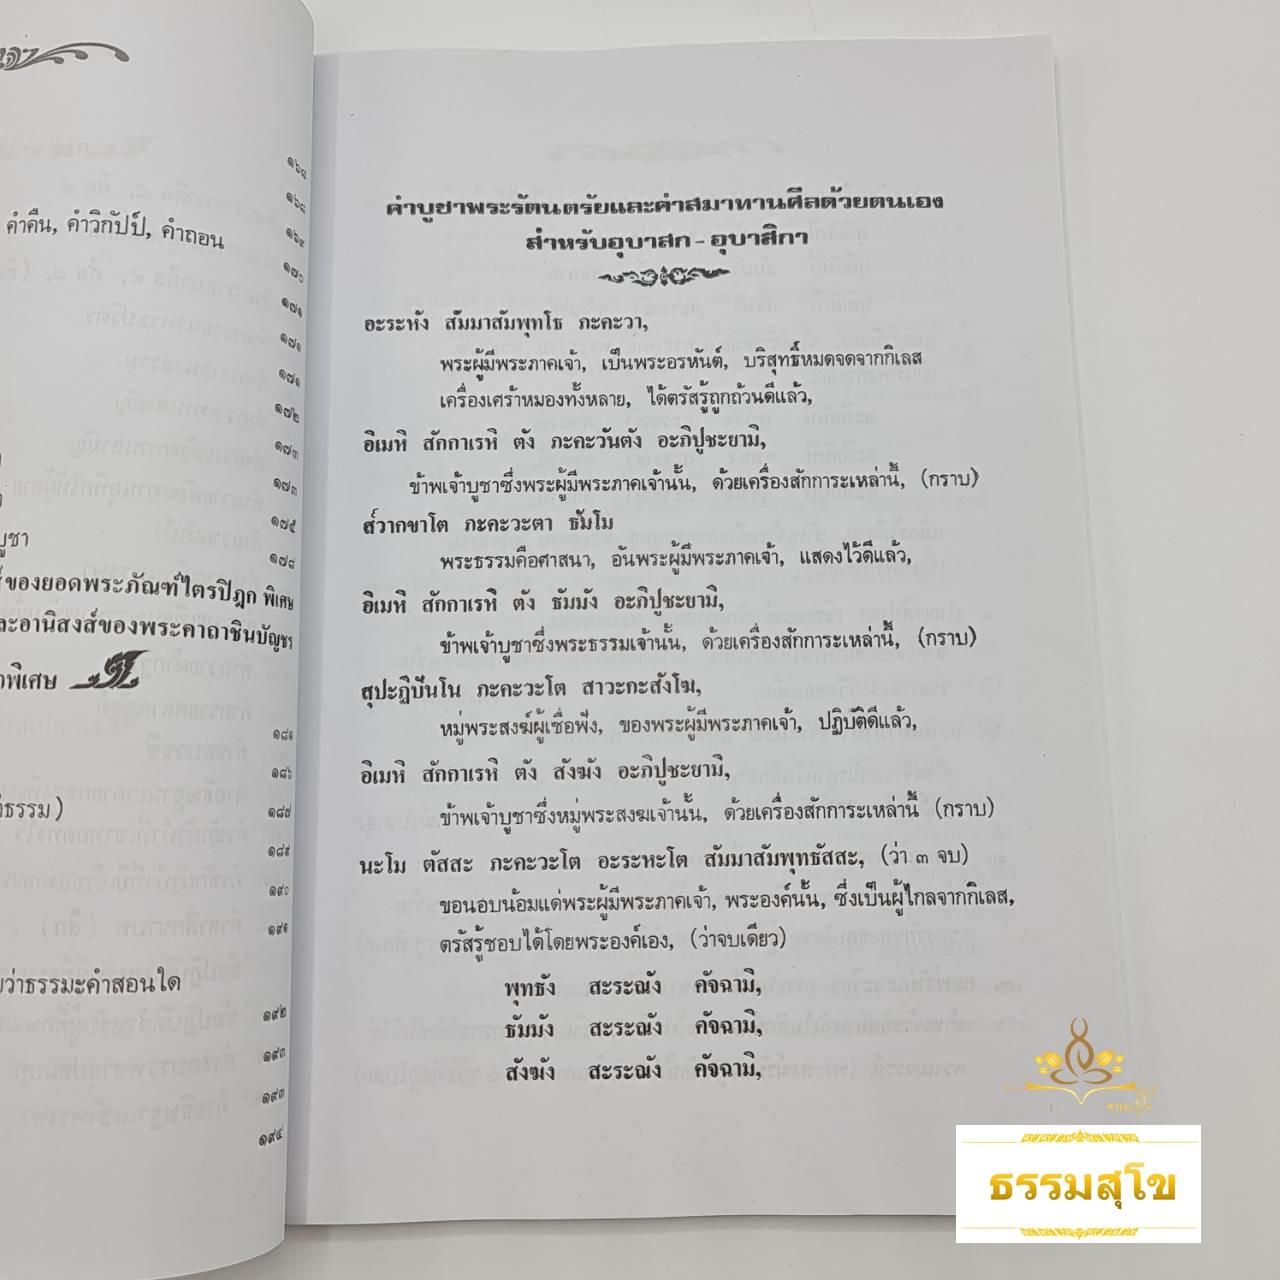 ๑๖๘
๑๖๘
คำคืน, คำวิกัปป์, คำถอน
๑๖๙
๑๗๐
๑๗๑
๑๗๑
๑๗๑
๑๗๒
๑๗๓
๑๗๓
๑๗๕
บูชา
๑๗๘
ของยอดพระภัณฑ์ไตรปิฎก พิเศษ
ละอานิสงส์ของพระคาถาชินบัญชร
พิเศษ
๑๘๑
๑๘๖
ธรรม)
๑๘๗
๑๘๙
๑๙๐
๑๙๑
ว่าธรรมะคำสอนใด
๑๙๒
๑๙๓
๑๙๓
๑๙๔
คำบูชาพระรัตนตรัยและคำสมาทานศีลด้วยตนเอง
สำหรับอุบาสก - อุบาสิกา
อะระหัง สัมมาสัมพุทโธ ภะคะวา,
พระผู้มีพระภาคเจ้า, เป็นพระอรหันต์, บริสุทธิ์หมดจดจากกิเลส
เครื่องเศร้าหมองทั้งหลาย, ได้ตรัสรู้ถูกถ้วนดีแล้ว,
อิเมหิ สักกาเรหิ ตัง ภะคะวันตัง อะภิปูชะยามิ,
ข้าพเจ้าบูชาซึ่งพระผู้มีพระภาคเจ้านั้น, ด้วยเครื่องสักการะเหล่านี้, (กราบ)
ส๎วากขาโต ภะคะวะตา ธัมโม
พระธรรมคือศาสนา, อันพระผู้มีพระภาคเจ้า, แสดงไว้ดีแล้ว,
อิเมหิ สักกาเรหิ ตัง ธัมมัง อะภิปูชะยามิ,
ข้าพเจ้าบูชาซึ่งพระธรรมเจ้านั้น, ด้วยเครื่องสักการะเหล่านี้, (กราบ)
สุปะฏิปันโน ภะคะวะโต สาวะกะสังโฆ,
หมู่พระสงฆ์ผู้เชื่อฟัง, ของพระผู้มีพระภาคเจ้า, ปฏิบัติดีแล้ว,
อิเมหิ สักกาเรหิ ตัง สังฆัง อะภิปูชะยามิ,
ข้าพเจ้าบูชาซึ่งหมู่พระสงฆเจ้านั้น, ด้วยเครื่องสักการะเหล่านี้ (กราบ)
นะโม ตัสสะ ภะคะวะโต อะระหะโต สัมมาสัมพุทธัสสะ, (ว่า ๓ จบ)
ขอนอบน้อมแด่พระผู้มีพระภาคเจ้า, พระองค์นั้น, ซึ่งเป็นผู้ไกลจากกิเลส,
ตรัสรู้ชอบได้โดยพระองค์เอง, (ว่าจบเดียว)
พุทธัง สะระณัง คัจฉามิ,
ธัมมัง สะระณัง คัจฉามิ,
สังฆัง สะระณัง คัจฉามิ,
ธรรมสุโข